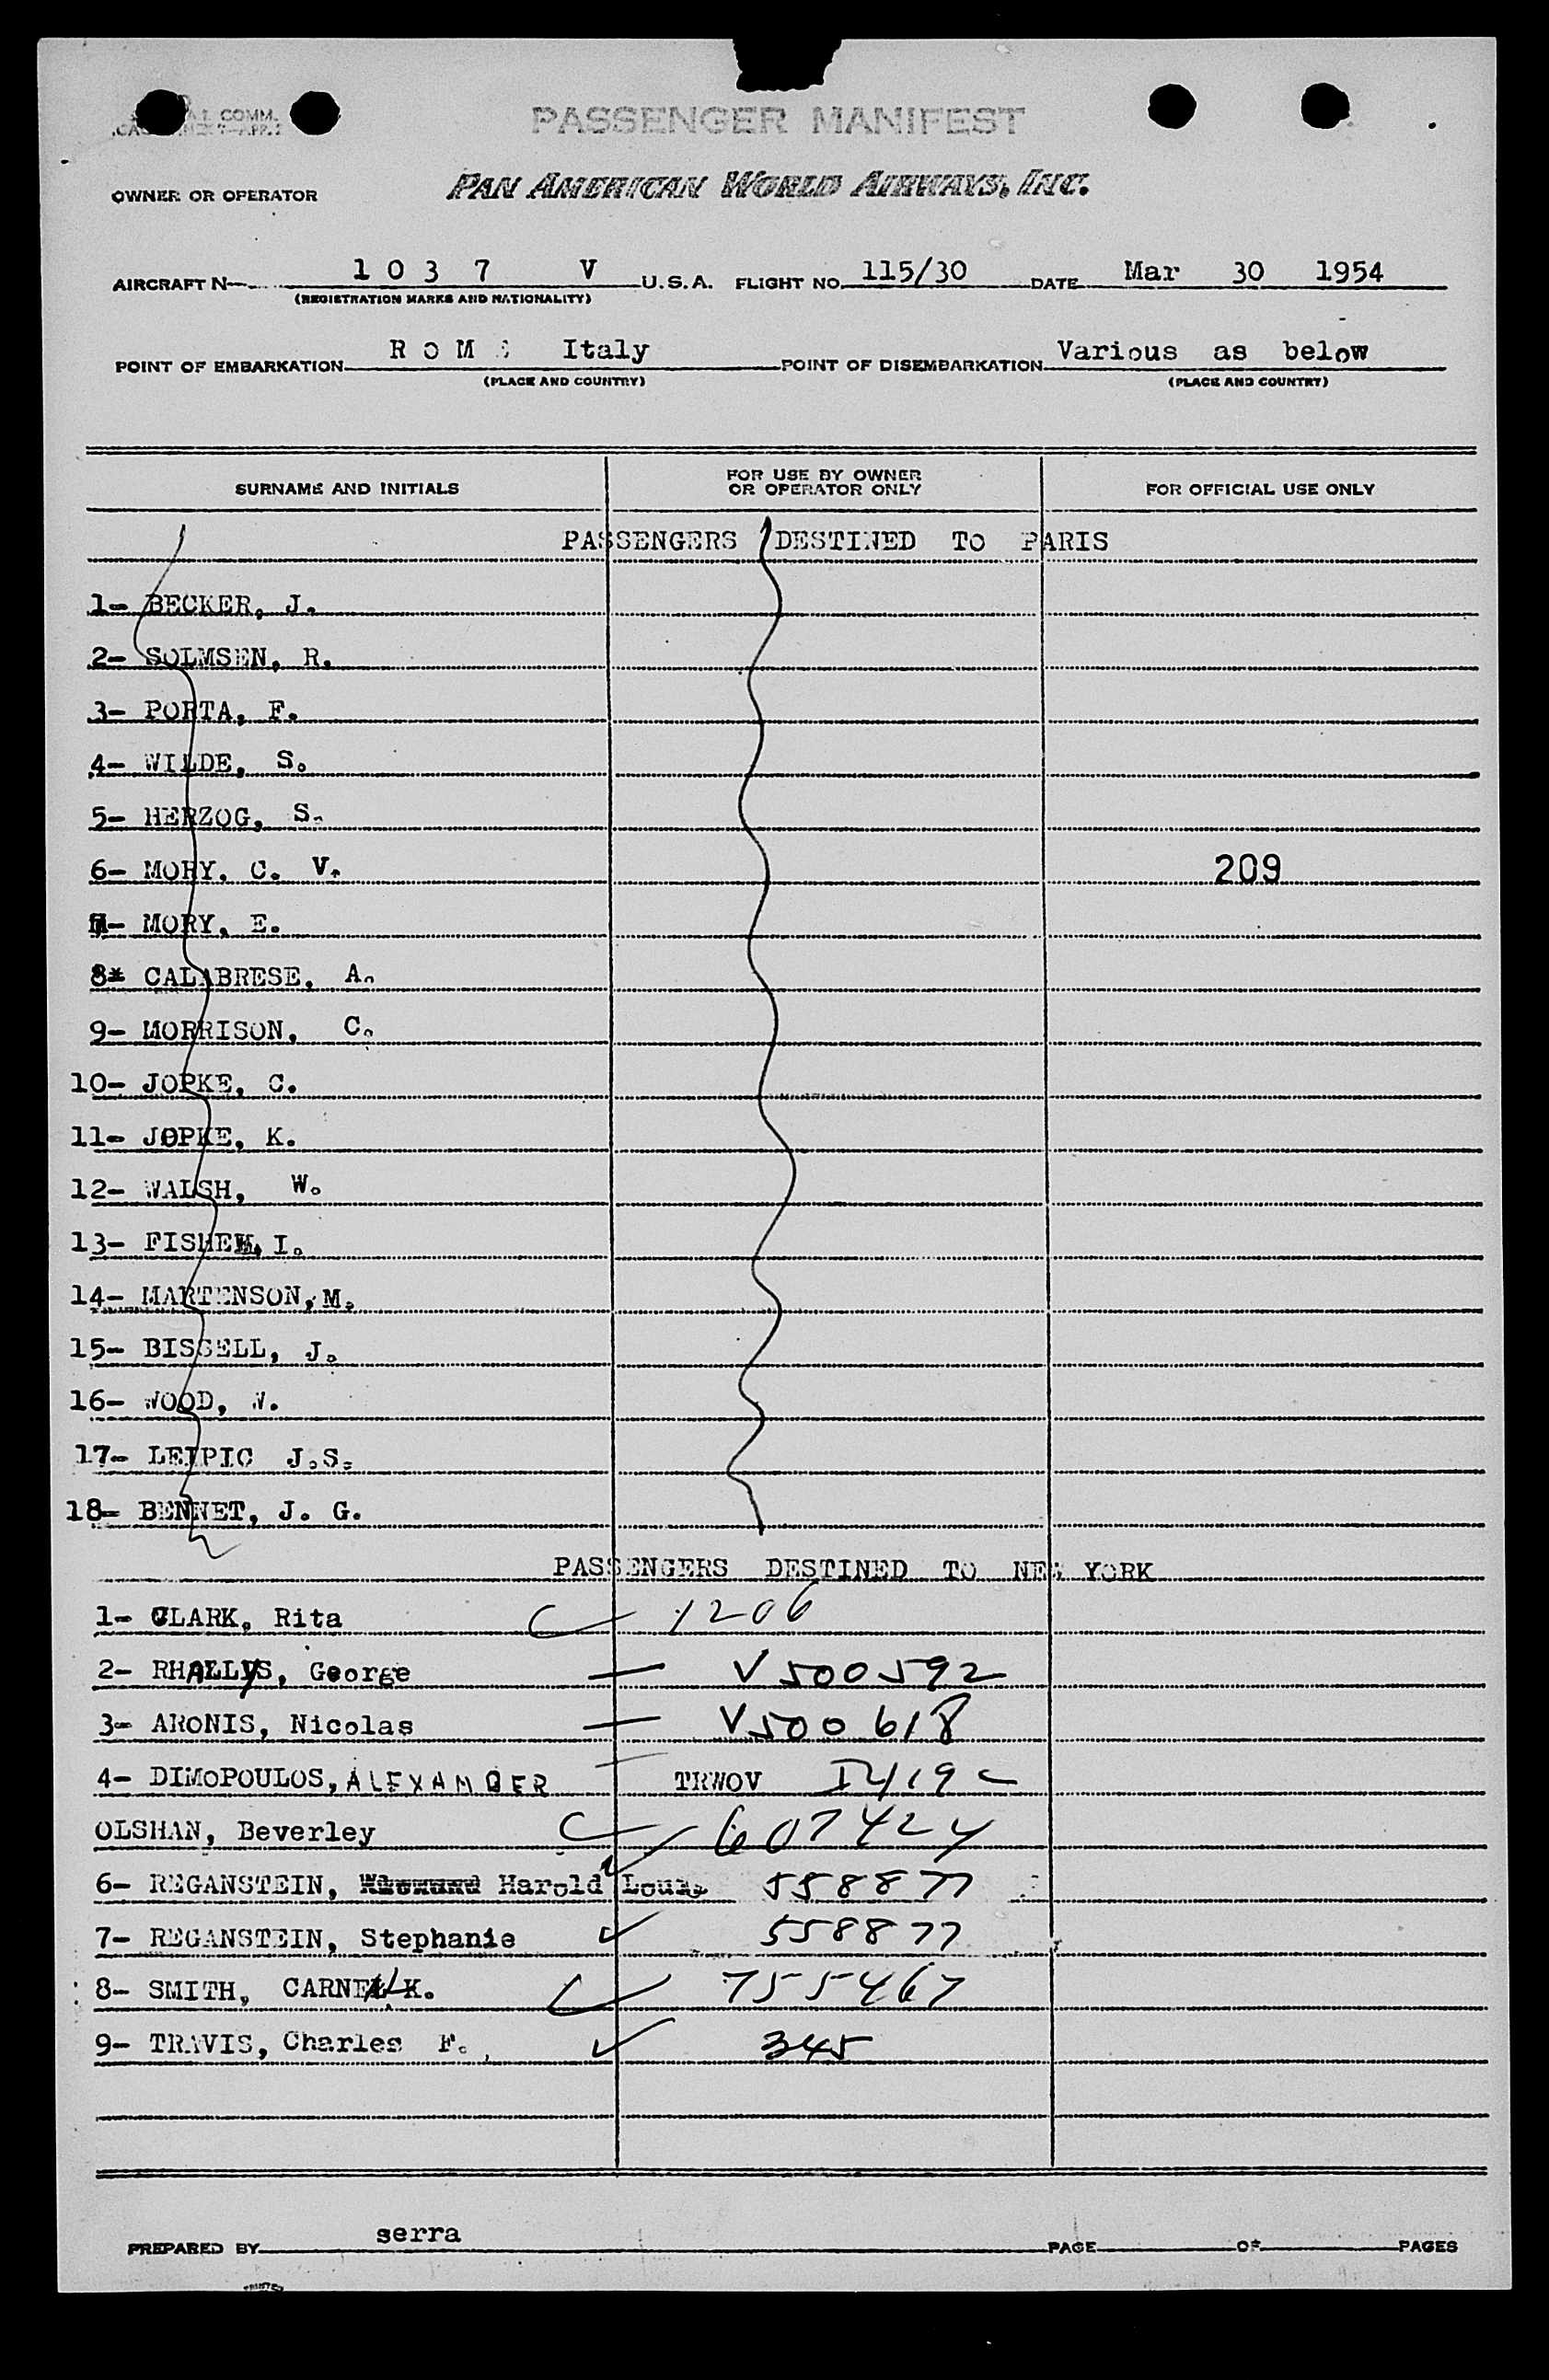 COMM.
PASSENGER MANIFEST
OWNER OR OPERATOR PAN AMERICAN WORLD AIRWAYS, INC.
AIRCRAFT N— 1 0 3 7 V U.S.A. FLIGHT NO. 115/30 DATE Mar 30 1954
(REGISTRATION MARKS AND NATIONALITY)
POINT OF EMBARKATION R o M E Italy POINT OF DISEMBARKATION Various as below
(PLACE AND COUNTRY) (PLACE AND COUNTRY)
SURNAME AND INITIALS FOR USE BY OWNER OR OPERATOR ONLY FOR OFFICIAL USE ONLY
PASSENGERS DESTINED TO PARIS
1- BECKER, J.
2- SOLMSEN, R.
3- PORTA, F.
4- WILDE, S.
5- HERZOG, S.
6- MORY. C. V. 209
7- MORY, E.
8* CALABRESE, A.
9- MORRISON, C.
10- JOPKE, C.
11- JOPKE, K.
12- WALSH, W.
13- FISHER, I.
14- MARTENSON, M.
15- BISSELL, J.
16- WOOD, W.
17- LEIPIC J.S.
18- BENNET, J. G.
PASSENGERS DESTINED TO NEW YORK
1- CLARK, Rita 1206
2- RHALLYS, George V 500592
3- ARONIS, Nicolas V500618
4- DIMOPOULOS, ALEXANDER TRWOV I419
OLSHAN, Beverley 607424
6- REGANSTEIN, Harold Louis 558877
7- REGANSTEIN, Stephanie 558877
8- SMITH, CARNELL K. 755467
9- TRAVIS, Charles F., 345
PREPARED BY serra PAGE OF PAGES
PRINTED